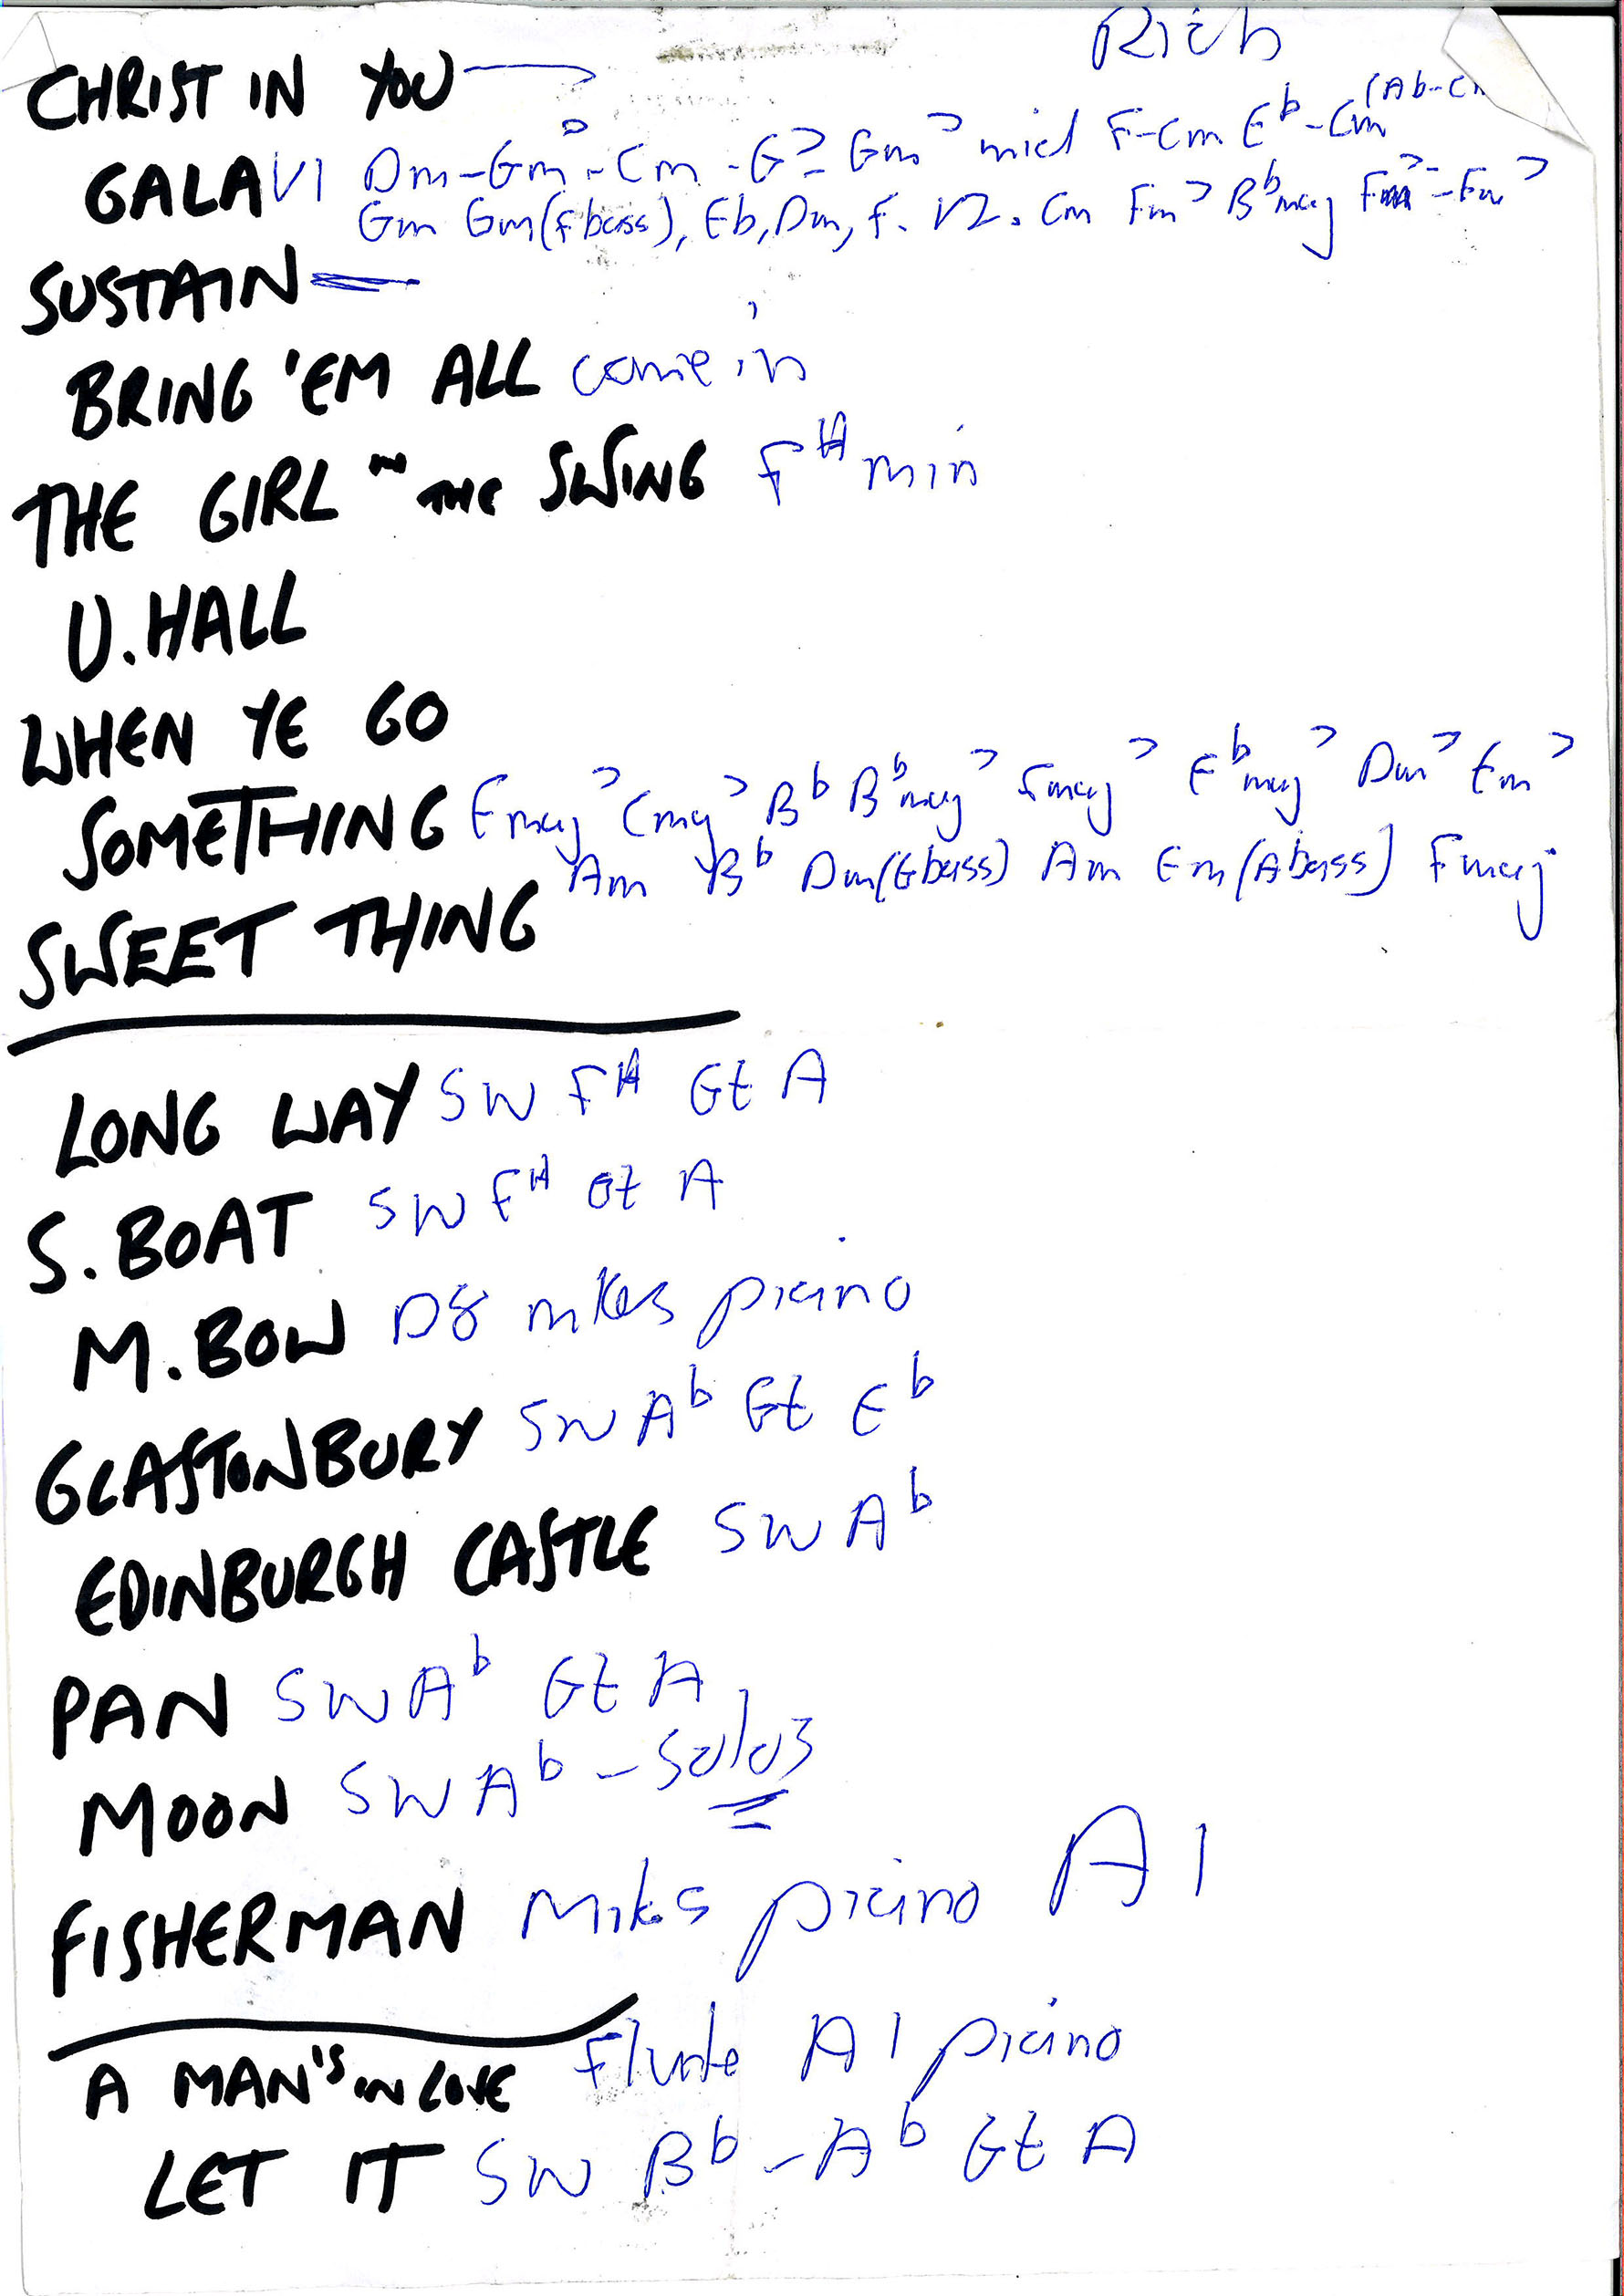 Rich
CHRIST IN YOU
(Ab-C
GALA V1 Dm-Gm7-Cm-G7= Gm7 mid F-Cm Eb-Cm
Gm Gm(F bass), Eb, Dm, F. V2. Cm Fm7 Bbmaj Fm7-Fm7
SUSTAIN
BRING 'EM ALL come in
THE GIRL IN THE SWING F# min
U.HALL
WHEN YE GO
SOMETHING Fmaj7 Cmaj7 Bb Bbmaj7 Fmaj7 Ebmaj7 Dm7 Em7
Am Bb Dm(G bass) Am Em(A bass) Fmaj
SWEET THING
LONG WAY SW F# Gt A
S.BOAT SW F# Gt A
M.BOW D8 mikes piano
GLASTONBURY SW Ab Gt Eb
EDINBURGH CASTLE SW Ab
PAN SW Ab Gt A
MOON SW Ab - solos
FISHERMAN Mikes piano A1
A MAN'S IN LOVE Flute A1 piano
LET IT SW Bb-Ab Gt A